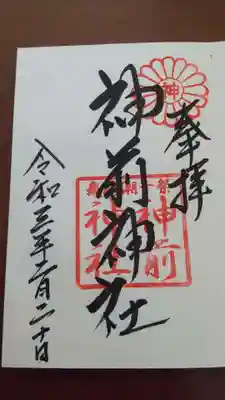 神
奉拝
神前神社
神前
神社
令和三年二月二十日